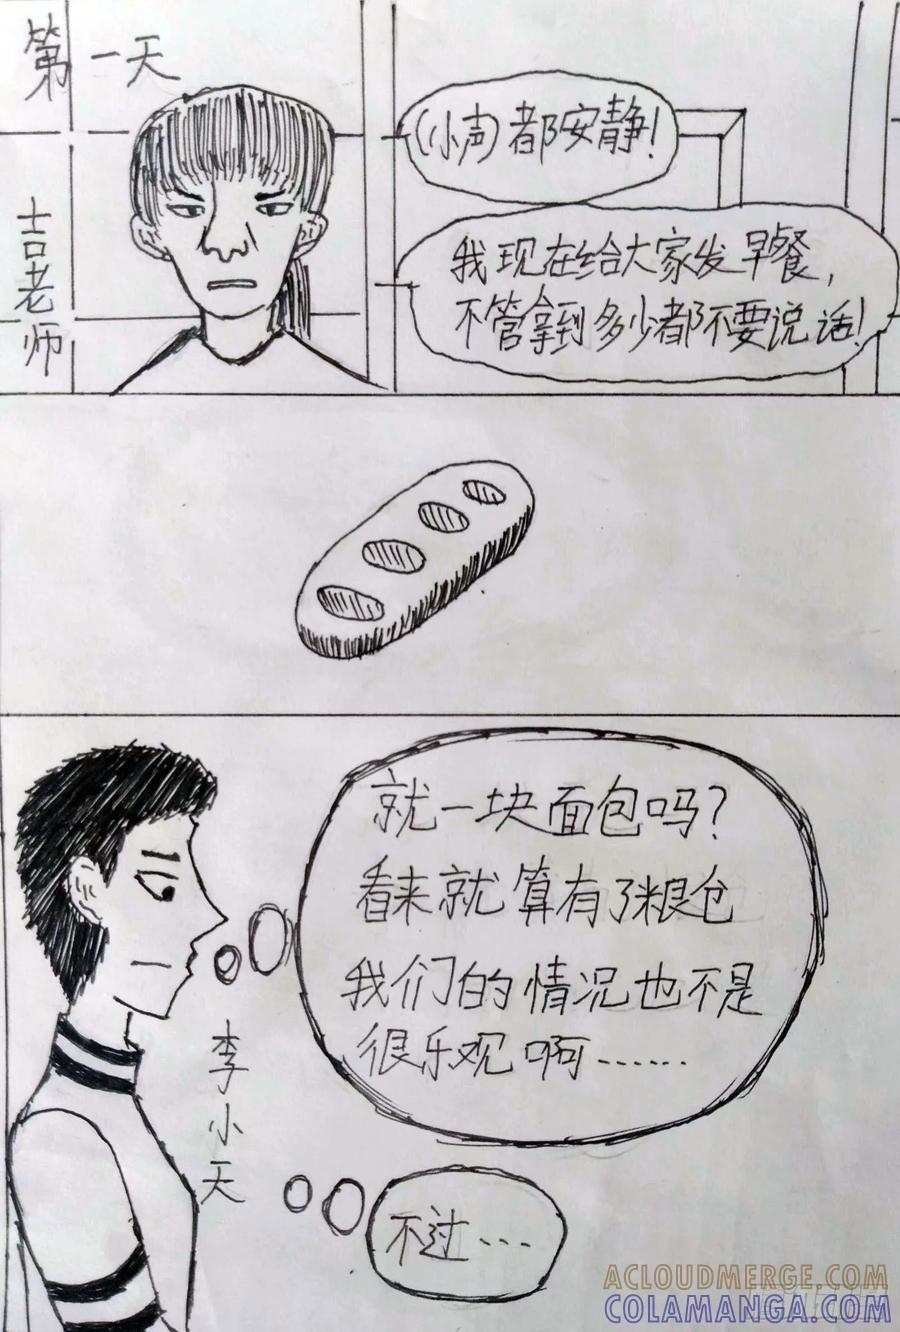 第一天
吉老师
(小声)都安静!
我现在给大家发早餐,
不管拿到多少都不要说话!
就一块面包吗?
看来就算有了粮仓
我们的情况也不是
很乐观啊……
李小天
不过……
ACLOUDMERGE.COM
COLAMANGA.COM